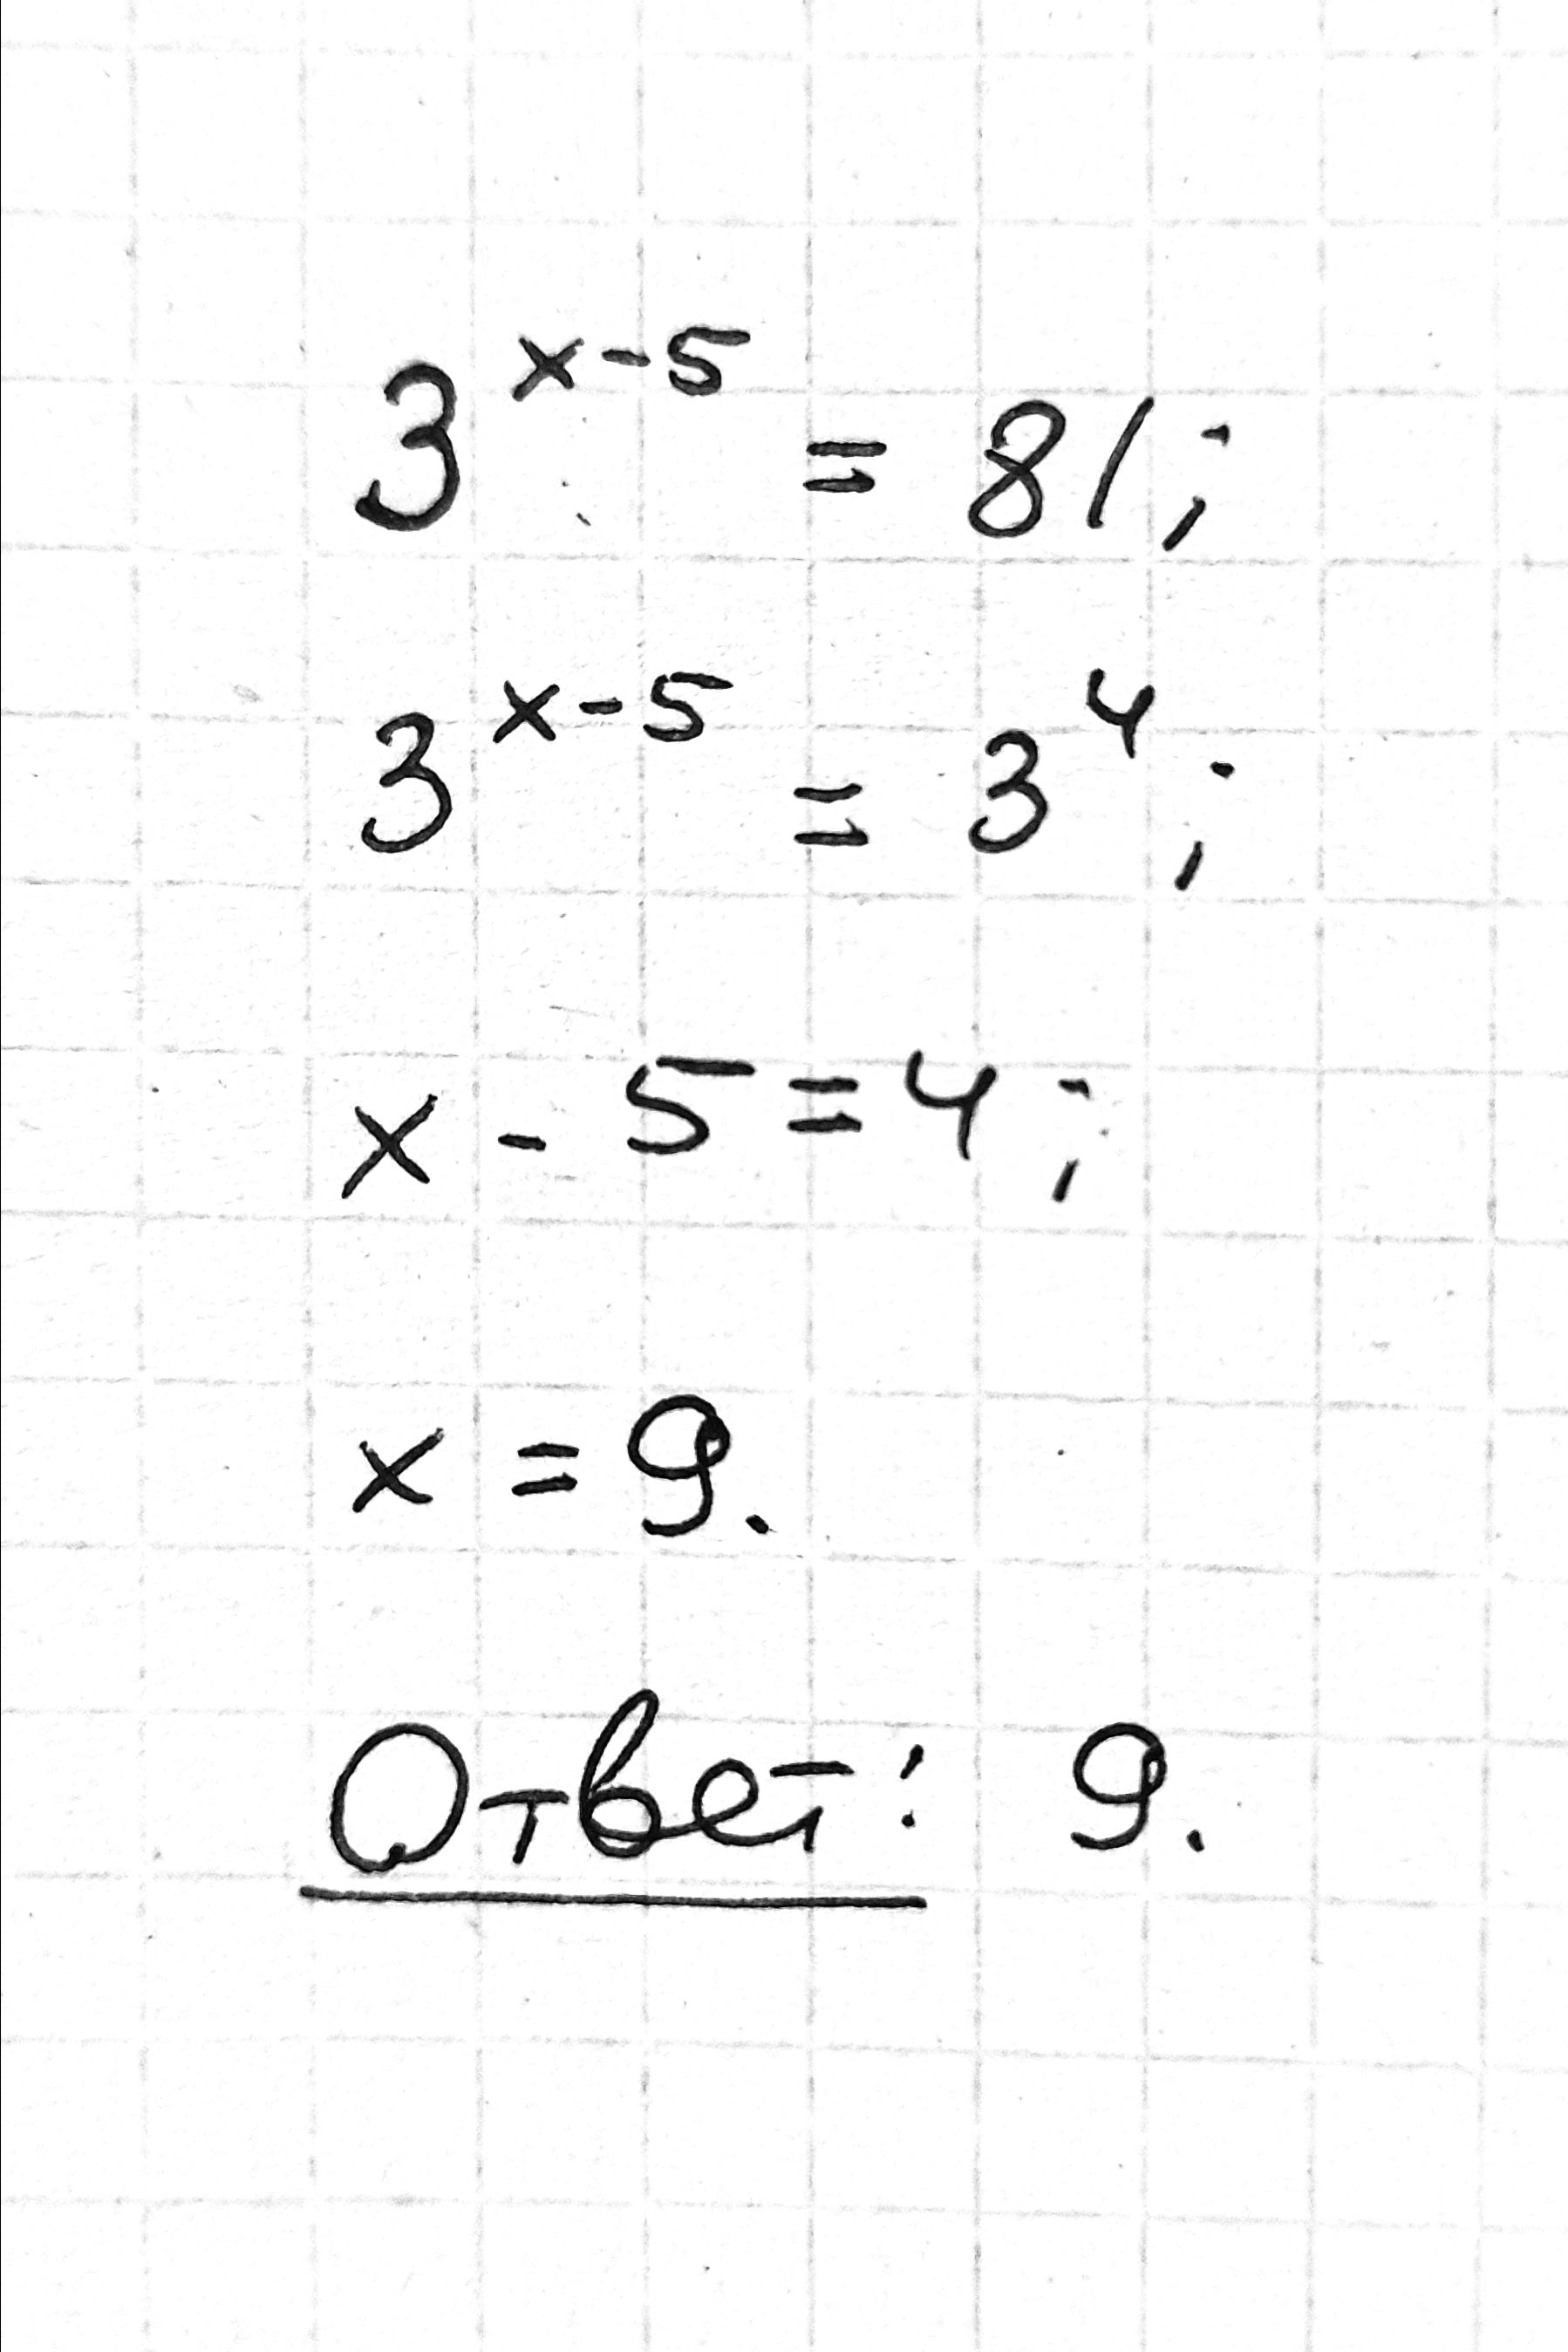 3^{x-5} = 81;
3^{x-5} = 3^4;
x - 5 = 4;
x = 9.
Ответ: 9.